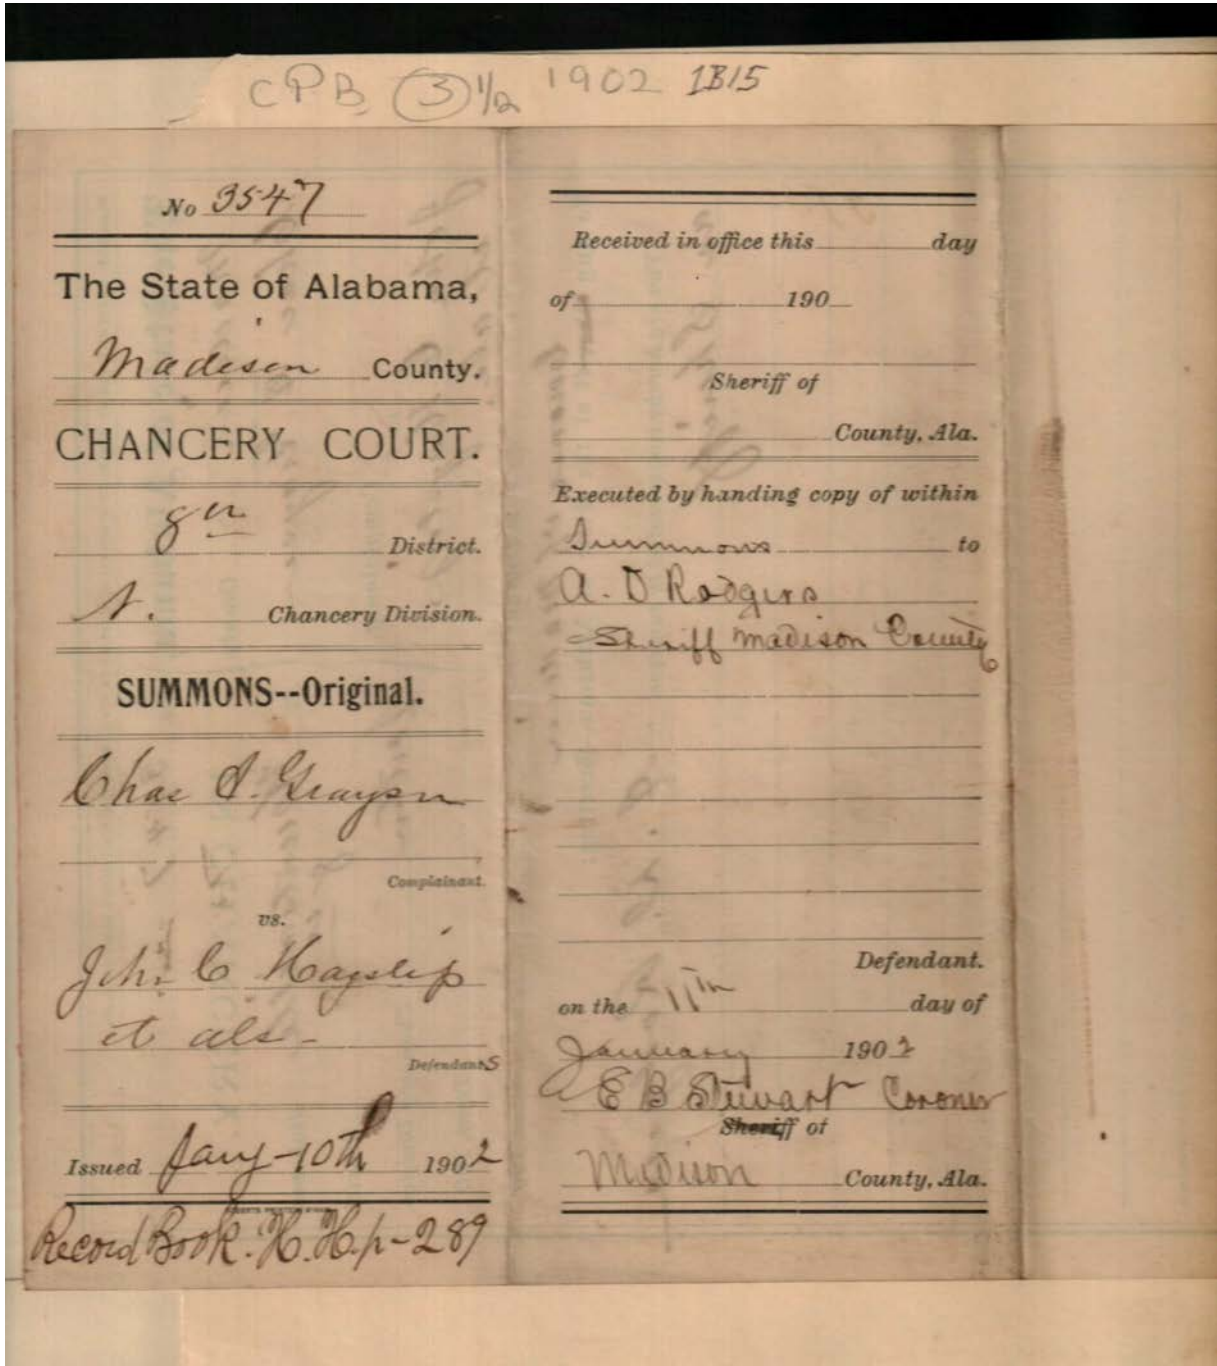 CPB (3) 1/2 1902 1B15
No 3547
The State of Alabama,
Madison County.
CHANCERY COURT.
8th District.
N. Chancery Division.
SUMMONS--Original.
Chas S. Grayson
Complainant.
vs.
John C Hayslip
et als -
Defendants
Issued Jany-10th 1902
Record Book. H. H. p-289
Received in office this day
of 190
Sheriff of
County, Ala.
Executed by handing copy of within
Summons to
A. D Rodgers
Sheriff Madison County
Defendant.
on the 11th day of
January 1902
E B Stewart Coroner
Sheriff of
Madison County, Ala.